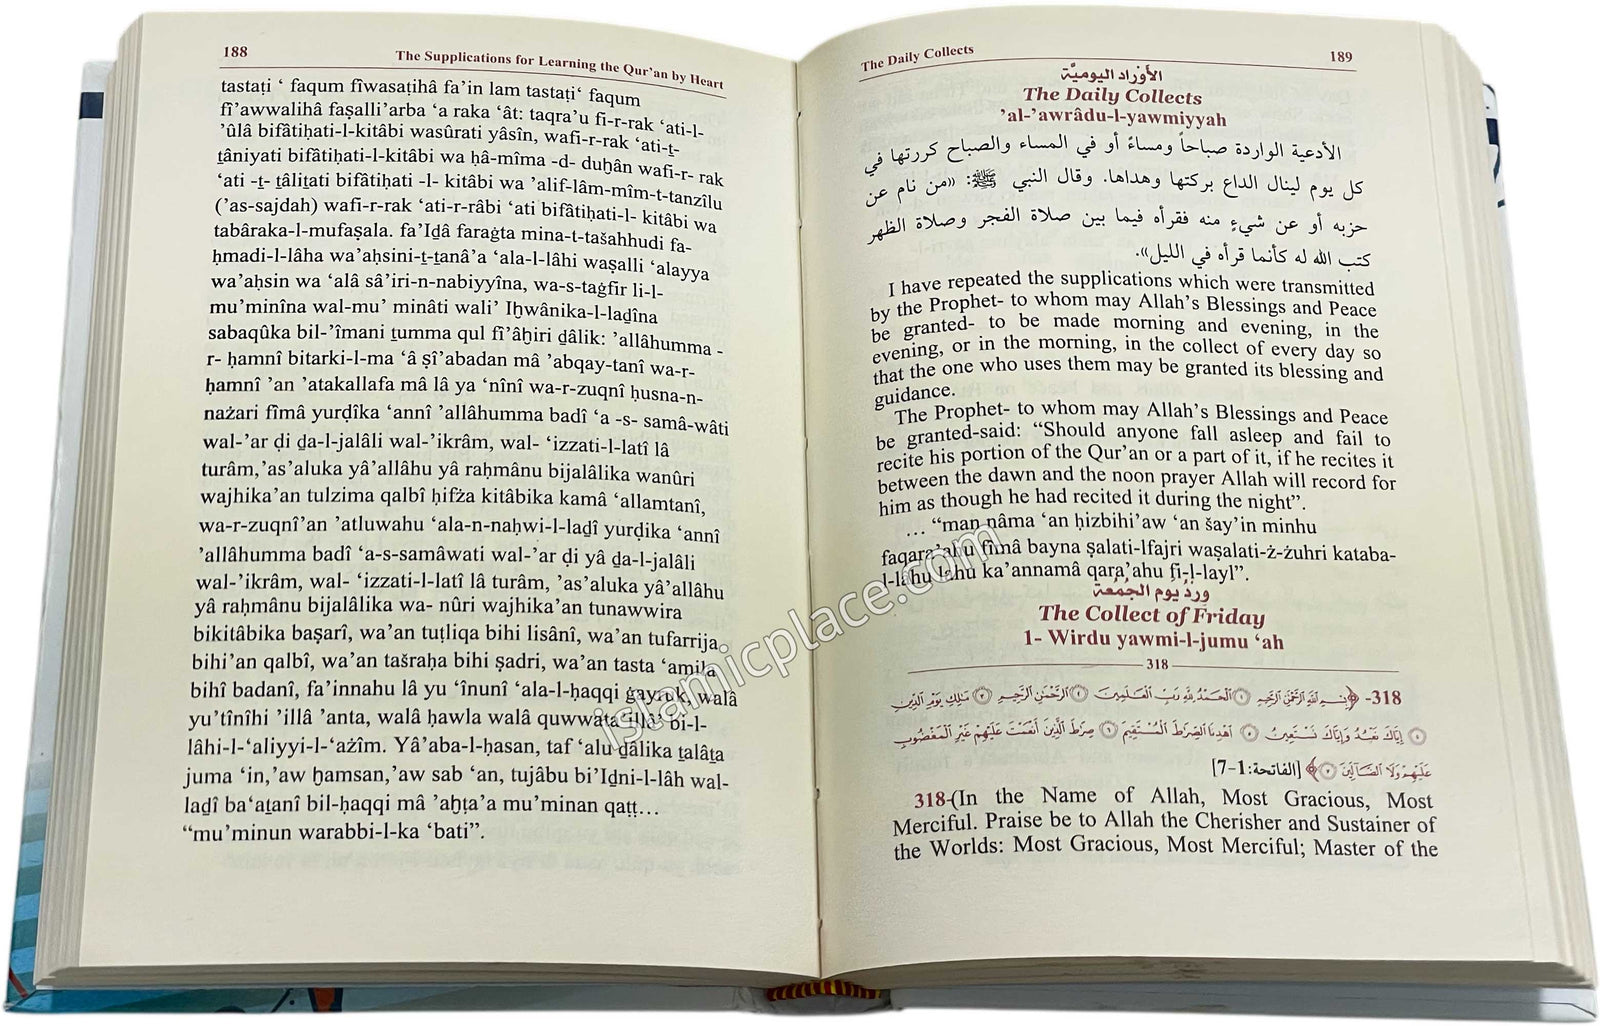 188
The Supplications for Learning the Qur'an by Heart
tastaṭi ‘ faqum fîwasaṭihâ fa’in lam tastaṭi‘ faqum
fî’awwalihâ faṣalli’arba ‘a raka ‘ât: taqra’u fi-r-rak ‘ati-l-
’ûlâ bifâtiḥati-l-kitâbi wasûrati yâsîn, wafi-r-rak ‘ati-ṯ-
ṯâniyati bifâtiḥati-l-kitâbi wa ḥâ-mîma -d- duẖân wafi-r- rak
‘ati -ṯ- ṯâliṯati bifâtiḥati -l- kitâbi wa ’alif-lâm-mîm-t-tanzîlu
(’as-sajdah) wafi-r-rak ‘ati-r-râbi ‘ati bifâtiḥati-l- kitâbi wa
tabâraka-l-mufaṣala. fa’Iḏâ faraġta mina-t-tašahhudi fa-
ḥmadi-l-lâha wa’aḥsini-ṯ-ṯanâ’a ‘ala-l-lâhi waṣalli ‘alayya
wa’aḥsin wa ‘alâ sâ’iri-n-nabiyyîna, wa-s-taġfir li-l-
mu’minîna wal-mu’ minâti wali’ Iẖwânika-l-laḏîna
sabaqûka bil-’îmani ṯumma qul fî’âẖiri ḏâlik: ’allâhumma -
r- ḥamnî bitarki-l-ma ‘â ṣî’abadan mâ ’abqay-tanî wa-r-
ḥamnî ’an ’atakallafa mâ lâ ya ‘nînî wa-r-zuqnî ḥusna-n-
nażari fîmâ yurḍîka ‘annî ’allâhumma badî ‘a -s- samâ-wâti
wal-’ar ḍi ḏa-l-jalâli wal-’ikrâm, wal- ‘izzati-l-latî lâ
turâm,’as’aluka yâ’allâhu yâ raḥmânu bijalâlika wanûri
wajhika’an tulzima qalbî ḥifża kitâbika kamâ ‘allamtanî,
wa-r-zuqnî’an ’atluwahu ‘ala-n-naḥwi-l-laḏî yurḍika ‘annî
’allâhumma badî ‘a-s-samâwati wal-’ar ḍi yâ ḏa-l-jalâli
wal-’ikrâm, wal- ‘izzati-l-latî lâ turâm, ’as’aluka yâ’allâhu
yâ raḥmânu bijalâlika wa- nûri wajhika’an tunawwira
bikitâbika baṣarî, wa’an tuṭliqa bihi lisânî, wa’an tufarrija
bihi’an qalbî, wa’an tašraḥa bihi ṣadri, wa’an tasta ‘mila
bihî badanî, fa’innahu lâ yu ‘înunî ‘ala-l-ḥaqqi ġayruk, walâ
yu’tînîhi ’illâ ’anta, walâ ḥawla walâ quwwata illâ’ bi-l-
lâhi-l-‘aliyyi-l-‘ażîm. Yâ’aba-l-ḥasan, taf ‘alu ḏâlika ṯalâṯa
juma ‘in,’aw ẖamsan,’aw sab ‘an, tujâbu bi’Iḏni-l-lâh wal-
laḏî ba‘aṯanî bil-ḥaqqi mâ ’aẖṭa’a mu’minan qaṭṭ…
“mu’minun warabbi-l-ka ‘bati”.
The Daily Collects
189
الأوْراد اليوميَّة
The Daily Collects
’al-’awrâdu-l-yawmiyyah
الأدعية الواردة صباحاً ومساءً أو في المساء والصباح كررتها في
كل يوم لينال الداع بركتها وهداها. وقال النبي ﷺ: «من نام عن
حزبه أو عن شيءٍ منه فقرأه فيما بين صلاة الفجر وصلاة الظهر
كتب الله له كأنما قرأه في الليل».
I have repeated the supplications which were transmitted
by the Prophet- to whom may Allah’s Blessings and Peace
be granted- to be made morning and evening, in the
evening, or in the morning, in the collect of every day so
that the one who uses them may be granted its blessing and
guidance.
The Prophet- to whom may Allah’s Blessings and Peace
be granted-said: “Should anyone fall asleep and fail to
recite his portion of the Qur’an or a part of it, if he recites it
between the dawn and the noon prayer Allah will record for
him as though he had recited it during the night”.
… “man nâma ‘an ḥizbihi’aw ‘an šay’in minhu
faqara’ahu fîmâ bayna ṣalati-lfajri waṣalati-ż-żuhri kataba-
l-lâhu lahu ka’annamâ qara’ahu fi-ḷ-layl”.
وِرْدُ يوم الجُمُعَة
The Collect of Friday
1- Wirdu yawmi-l-jumu ‘ah
318
318- ﴿بِسْمِ اللَّهِ الرَّحْمَٰنِ الرَّحِيمِ ١ الْحَمْدُ لِلَّهِ رَبِّ الْعَالَمِينَ ٢ الرَّحْمَٰنِ الرَّحِيمِ ٣ مَالِكِ يَوْمِ الدِّينِ
٤ إِيَّاكَ نَعْبُدُ وَإِيَّاكَ نَسْتَعِينُ ٥ اهْدِنَا الصِّرَاطَ الْمُسْتَقِيمَ ٦ صِرَاطَ الَّذِينَ أَنْعَمْتَ عَلَيْهِمْ غَيْرِ الْمَغْضُوبِ
عَلَيْهِمْ وَلَا الضَّالِّينَ ٧﴾ [الفاتحة:1-7]
318-(In the Name of Allah, Most Gracious, Most
Merciful. Praise be to Allah the Cherisher and Sustainer of
the Worlds: Most Gracious, Most Merciful; Master of the
islamicplace.com